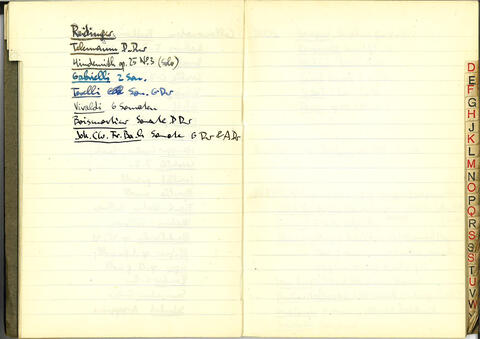 Reidinger
Telemann D-Dur
Hindemith op. 25 No. 3 (Solo)
Gabrielli 2 Son.
Torelli Son. G-Dur
Vivaldi 6 Sonaten
Boismortier Sonate D Dur
Joh. Chr. Fr. Bach Sonate G Dur & A Dr
D
E
F
G
H
J
K
L
M
N
O
P
Q
R
S
S
S
T
U
V
W